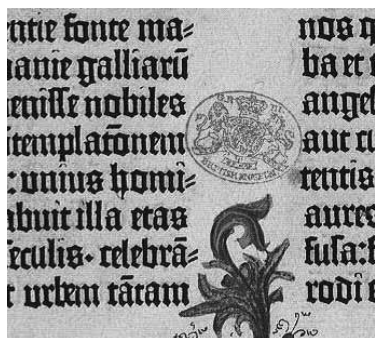 ntie fonte ma=
panie galliarū
enisse nobiles
templatōnem
: unius homi=
abuit illa etas
seculis· celebrā=
t urbem tātam
nos q
ba et t
angel
aut cu
rentis
aureo
fusa:f
rodi e